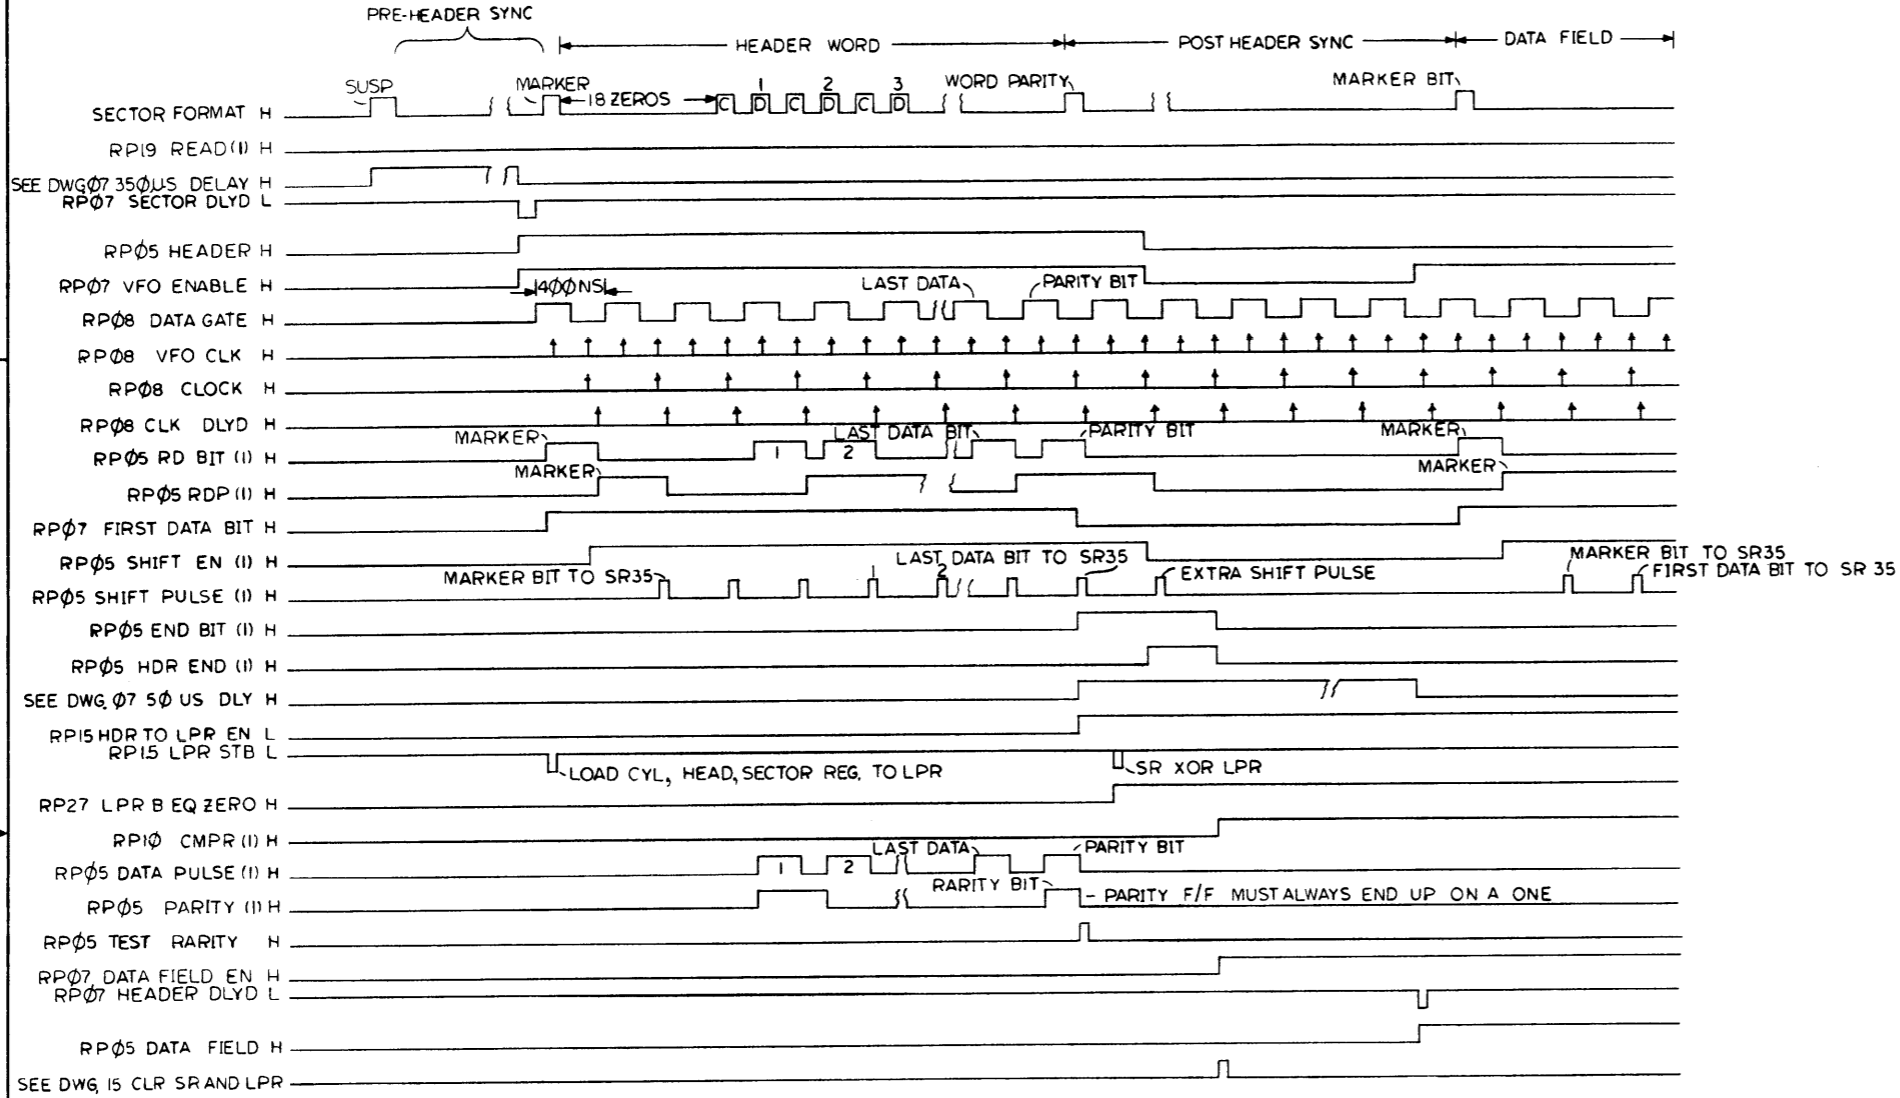 PRE-HEADER SYNC
HEADER WORD
POST HEADER SYNC
DATA FIELD
SUSP
MARKER
18 ZEROS
1
2
3
C D C D C D
WORD PARITY
MARKER BIT
SECTOR FORMAT H
RP19 READ(1) H
SEE DWG.Ø7 35Ø,US DELAY H
RPØ7 SECTOR DLYD L
RPØ5 HEADER H
RPØ7 VFO ENABLE H
4ØØNS
LAST DATA
PARITY BIT
RPØ8 DATA GATE H
RPØ8 VFO CLK H
RPØ8 CLOCK H
RPØ8 CLK DLYD H
MARKER
LAST DATA BIT
PARITY BIT
MARKER
RPØ5 RD BIT (1) H
1
2
MARKER
MARKER
RPØ5 RDP (1) H
RPØ7 FIRST DATA BIT H
RPØ5 SHIFT EN (1) H
LAST DATA BIT TO SR35
MARKER BIT TO SR35
MARKER BIT TO SR35
1
2
EXTRA SHIFT PULSE
FIRST DATA BIT TO SR 35
RPØ5 SHIFT PULSE (1) H
RPØ5 END BIT (1) H
RPØ5 HDR END (1) H
SEE DWG. Ø7 5Ø US DLY H
RP15 HDR TO LPR EN L
RP15 LPR STB L
LOAD CYL, HEAD, SECTOR REG. TO LPR
SR XOR LPR
RP27 LPR B EQ ZERO H
RP1Ø CMPR (1) H
LAST DATA
PARITY BIT
RPØ5 DATA PULSE (1) H
1
2
RARITY BIT
RPØ5 PARITY (1) H
- PARITY F/F MUST ALWAYS END UP ON A ONE
RPØ5 TEST RARITY H
RPØ7, DATA FIELD EN H
RPØ7 HEADER DLYD L
RPØ5 DATA FIELD H
SEE DWG, 15 CLR SR AND LPR